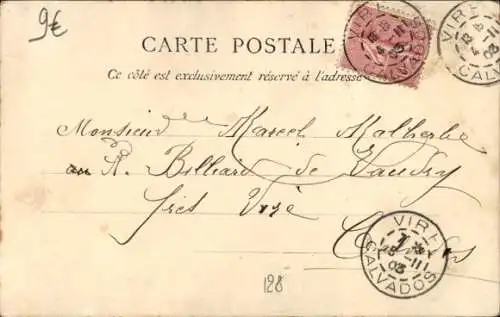 9€
CARTE POSTALE
Ce côté est exclusivement réservé à l'adresse
VIRE CALVADOS
VIRE CALVADOS
Monsieur Marcel Malherbe
au R. Billiard de Vaudry
près Vire
VIRE
03
CALVADOS
128